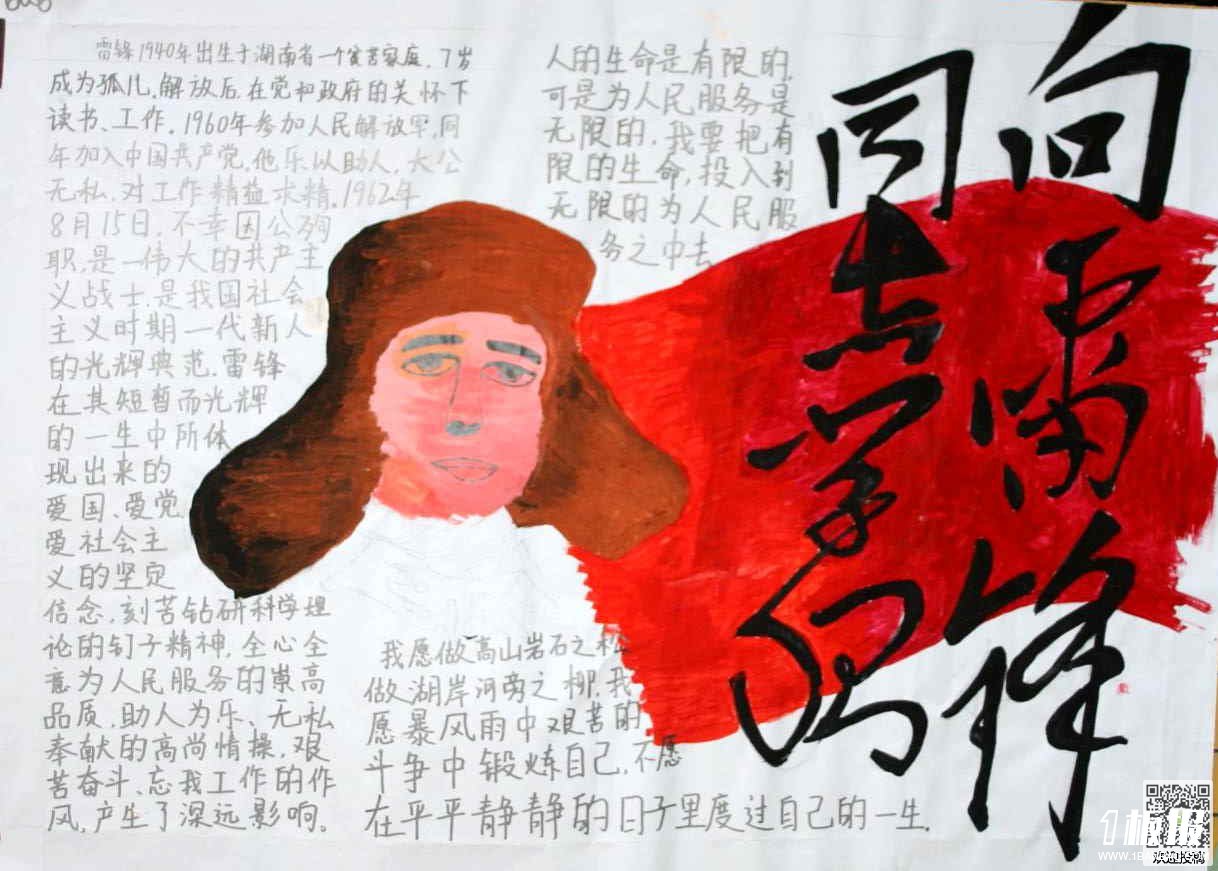 向雷锋
同志学习
雷锋1940年出生于湖南省一个贫苦家庭，7岁
成为孤儿，解放后，在党和政府的关怀下
读书、工作。1960年参加人民解放军，同
年加入中国共产党，他乐以助人，大公
无私，对工作精益求精。1962年
8月15日，不幸因公殉
职，是一伟大的共产主
义战士，是我国社会
主义时期一代新人
的光辉典范，雷锋
在其短暂而光辉
的一生中所体
现出来的
爱国、爱党
爱社会主
义的坚定
信念，刻苦钻研科学理
论的钉子精神，全心全
意为人民服务的崇高
品质，助人为乐、无私
奉献的高尚情操，艰
苦奋斗、忘我工作的作
风，产生了深远影响。
人的生命是有限的，
可是为人民服务是
无限的，我要把有
限的生命，投入到
无限的为人民服
务之中去
我愿做高山岩石之松
做湖岸河旁之柳，我
愿暴风雨中艰苦的
斗争中锻炼自己，不愿
在平平静静的日子里度过自己的一生.
欢迎投稿